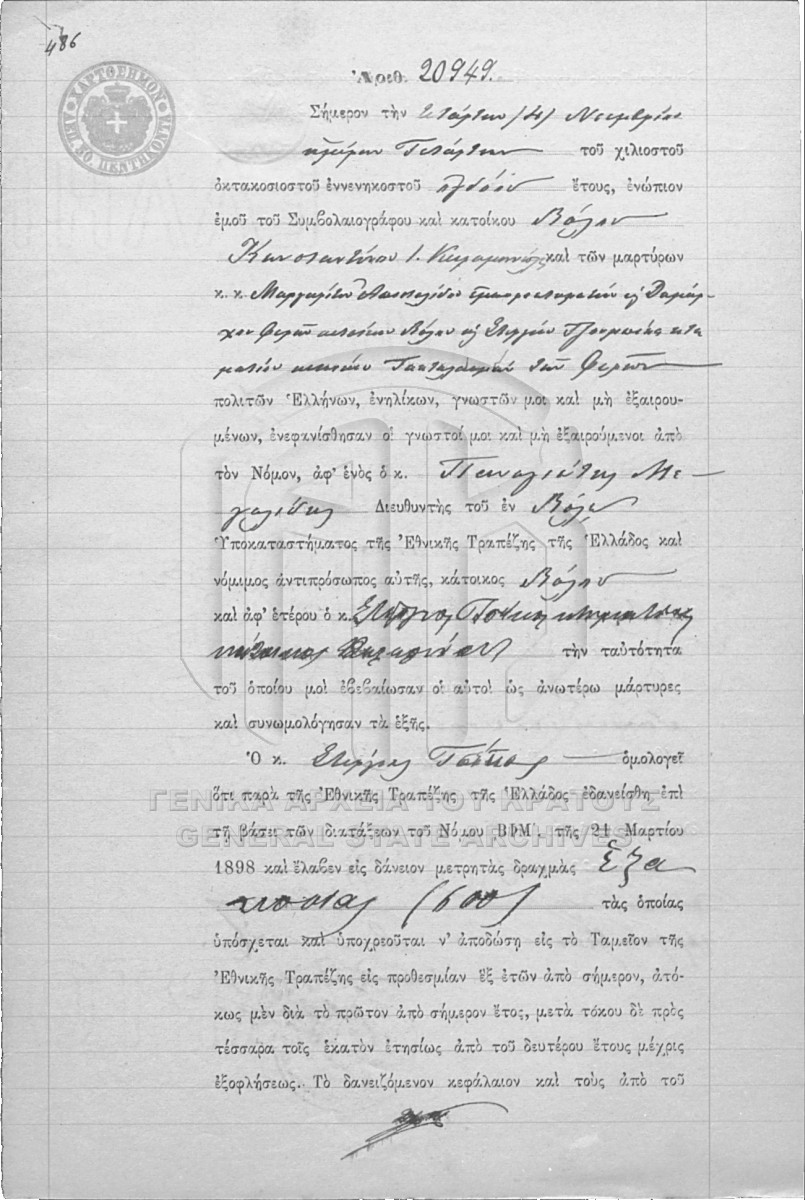 486
ΧΑΡΤΟΣΗΜΟΝ
ΛΕΠ. 50 ΠΕΝΤΗΚΟΝΤΑ
Ἀριθ. 20949.
Σήμερον τὴν τετάρτην (4) Νοεμβρίου
ἡμέραν Τετάρτην τοῦ χιλιοστοῦ
ὀκτακοσιοστοῦ ἐννενηκοστοῦ ὀγδόου ἔτους, ἐνώπιον
ἐμοῦ τοῦ Συμβολαιογράφου καὶ κατοίκου Βόλου
Κωνσταντίνου Ι. καὶ τῶν μαρτύρων
κ. κ. Μαργαρίτου Ἀποστολίδου
Φερῶν κατοίκου Βόλου Στεργίου
κατοίκου τῶν Φερῶν
πολιτῶν Ἑλλήνων, ἐνηλίκων, γνωστῶν μοι καὶ μὴ ἐξαιρου-
μένων, ἐνεφανίσθησαν οἱ γνωστοί μοι καὶ μὴ ἐξαιρούμενοι ἀπὸ
τὸν Νόμον, ἀφ' ἑνὸς ὁ κ. Παναγιώτης Με-
γαλίδης Διευθυντὴς τοῦ ἐν Βόλῳ
Ὑποκαταστήματος τῆς Ἐθνικῆς Τραπέζης τῆς Ἑλλάδος καὶ
νόμιμος ἀντιπρόσωπος αὐτῆς, κάτοικος Βόλου
καὶ ἀφ' ἑτέρου ὁ κ. Στέργιος κτηματίας
κάτοικος τὴν ταὐτότητα
τοῦ ὁποίου μοὶ ἐβεβαίωσαν οἱ αὐτοὶ ὡς ἀνωτέρω μάρτυρες
καὶ συνωμολόγησαν τὰ ἑξῆς.
Ὁ κ. Στέργιος ὁμολογεῖ
ὅτι παρὰ τῆς Ἐθνικῆς Τραπέζης τῆς Ἑλλάδος ἐδανείσθη ἐπὶ
ΓΕΝΙΚΑ ΑΡΧΕΙΑ ΤΟΥ ΚΡΑΤΟΥΣ
τῇ βάσει τῶν διατάξεων τοῦ Νόμου ΒΦΜ΄. τῆς 21 Μαρτίου
GENERAL STATE ARCHIVES
1898 καὶ ἔλαβεν εἰς δάνειον μετρητὰς δραχμὰς Ἑξα
κοσίας (600) τὰς ὁποίας
ὑπόσχεται καὶ ὑποχρεοῦται ν' ἀποδώσῃ εἰς τὸ Ταμεῖον τῆς
Ἐθνικῆς Τραπέζης εἰς προθεσμίαν ἓξ ἐτῶν ἀπὸ σήμερον, ἀτό-
κως μὲν διὰ τὸ πρῶτον ἀπὸ σήμερον ἔτος, μετὰ τόκου δὲ πρὸς
τέσσαρα τοῖς ἑκατὸν ἐτησίως ἀπὸ τοῦ δευτέρου ἔτους μέχρις
ἐξοφλήσεως. Τὸ δανειζόμενον κεφάλαιον καὶ τοὺς ἀπὸ τοῦ